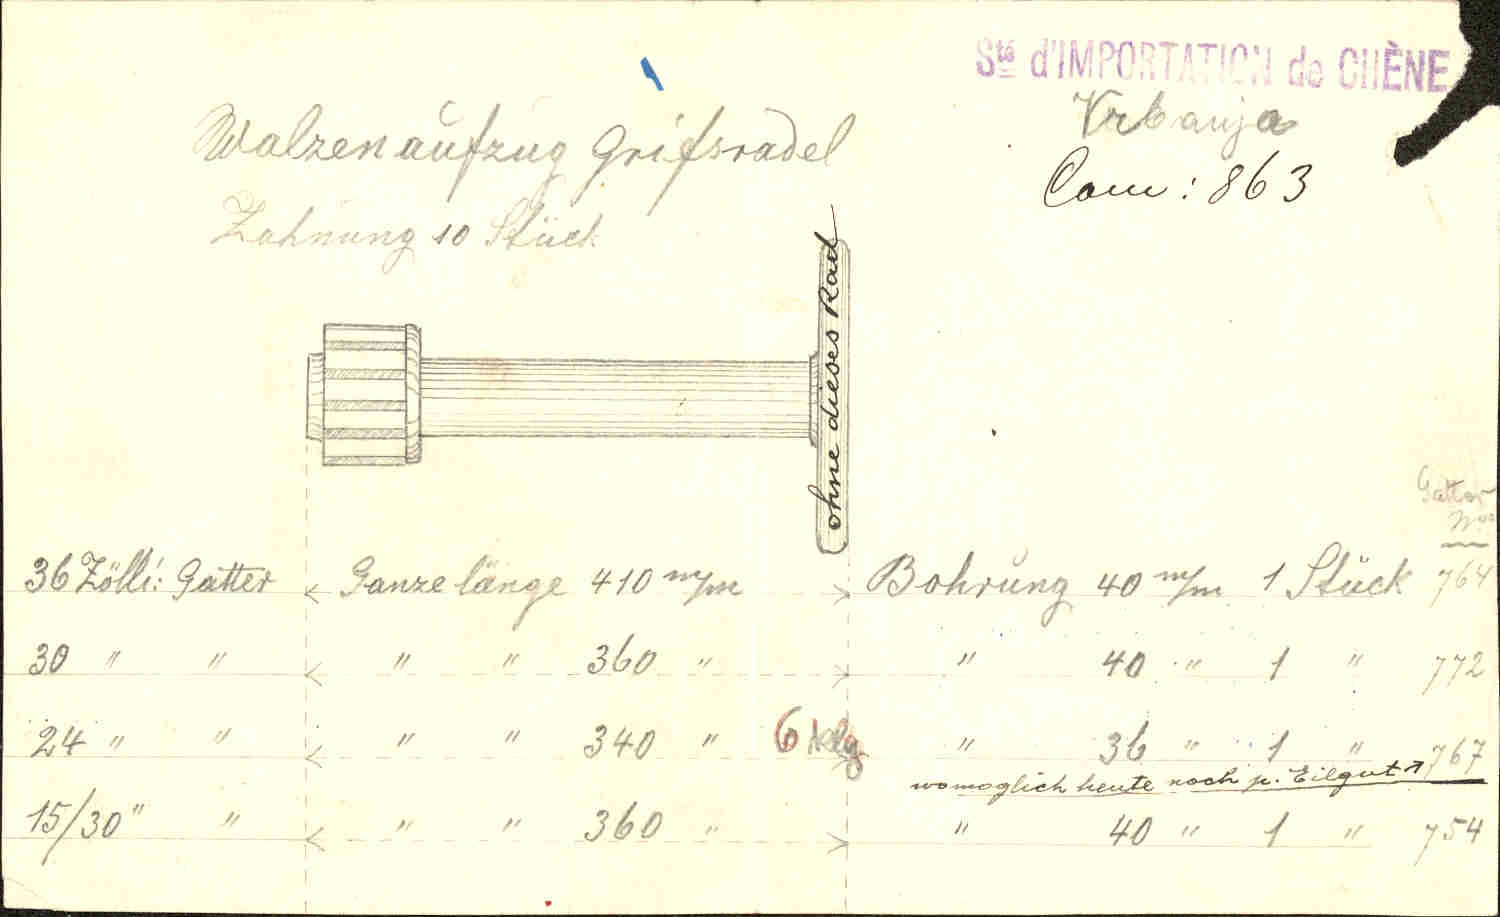 Sté d'IMPORTATION de CHÈNE
Vrbanja
Com: 863
Walzenaufzug Grifsradel
Zahnung 10 Stück
ohne dieses Rad
Gatter
Nro
36 Zölli: Gatter Ganze länge 410 m/m Bohrung 40 m/m 1 Stück 764
30 " " " " 360 " " 40 " 1 " 772
24 " " " " 340 " 6 klg " 36 " 1 " 767
womoglich heute noch p. Eilgut
15/30" " " " 360 " " 40 " 1 " 754